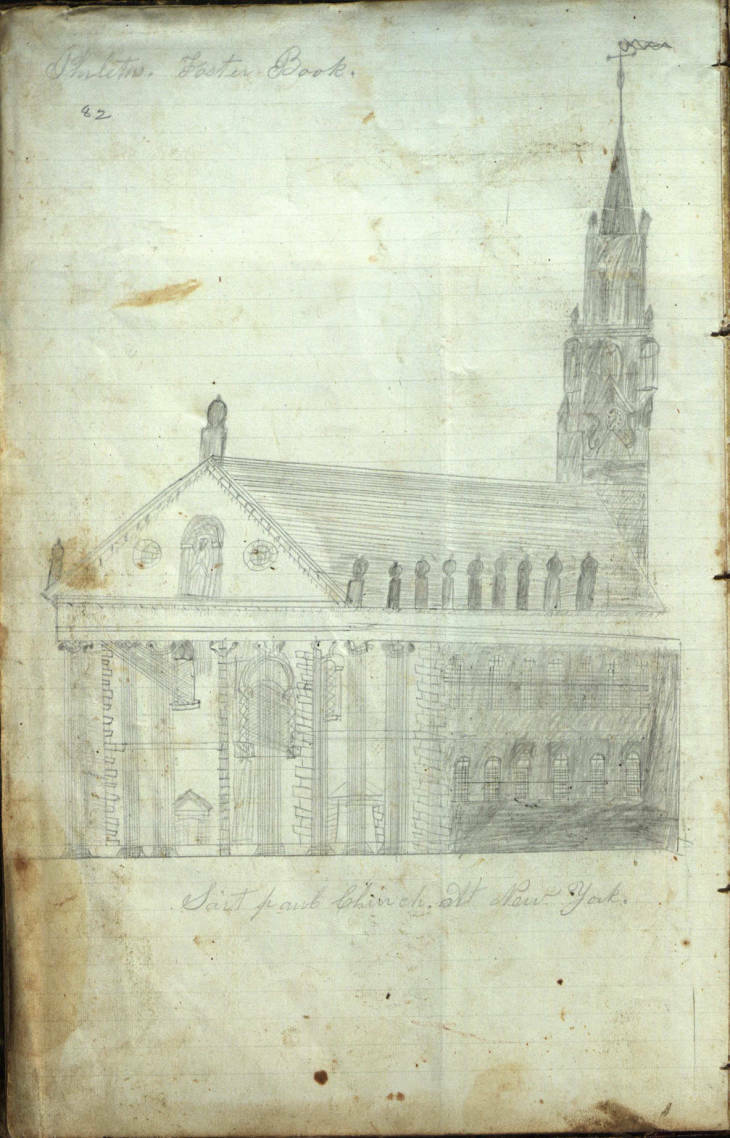 Phileto. Foster Book.
82
Sait paul Church. At New York.